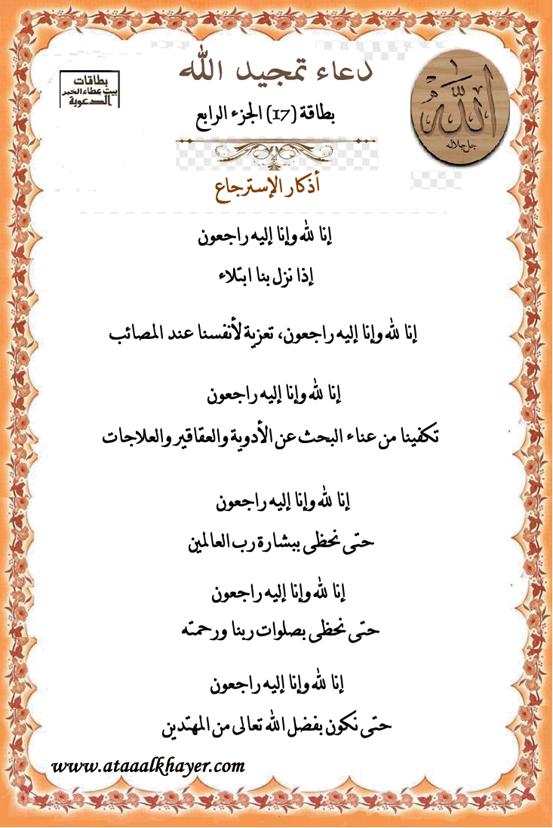 دعاء تمجيد الله
بطاقات
بيت عطاء الخير
الدعوية
الله
جل جلاله
بطاقة (17) الجزء الرابع
أذكار الإسترجاع
إنا لله وإنا إليه راجعون
إذا نزل بنا ابتلاء
إنا لله وإنا إليه راجعون، تعزية لأنفسنا عند المصائب
إنا لله وإنا إليه راجعون
تكفينا من عناء البحث عن الأدوية والعقاقير والعلاجات
إنا لله وإنا إليه راجعون
حتى نحظى ببشارة رب العالمين
إنا لله وإنا إليه راجعون
حتى نحظى بصلوات ربنا ورحمته
إنا لله وإنا إليه راجعون
حتى نكون بفضل الله تعالى من المهتدين
www.ataaalkhayer.com